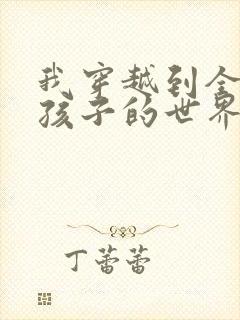 我穿越到全
孩子的世界
丁蕾蕾